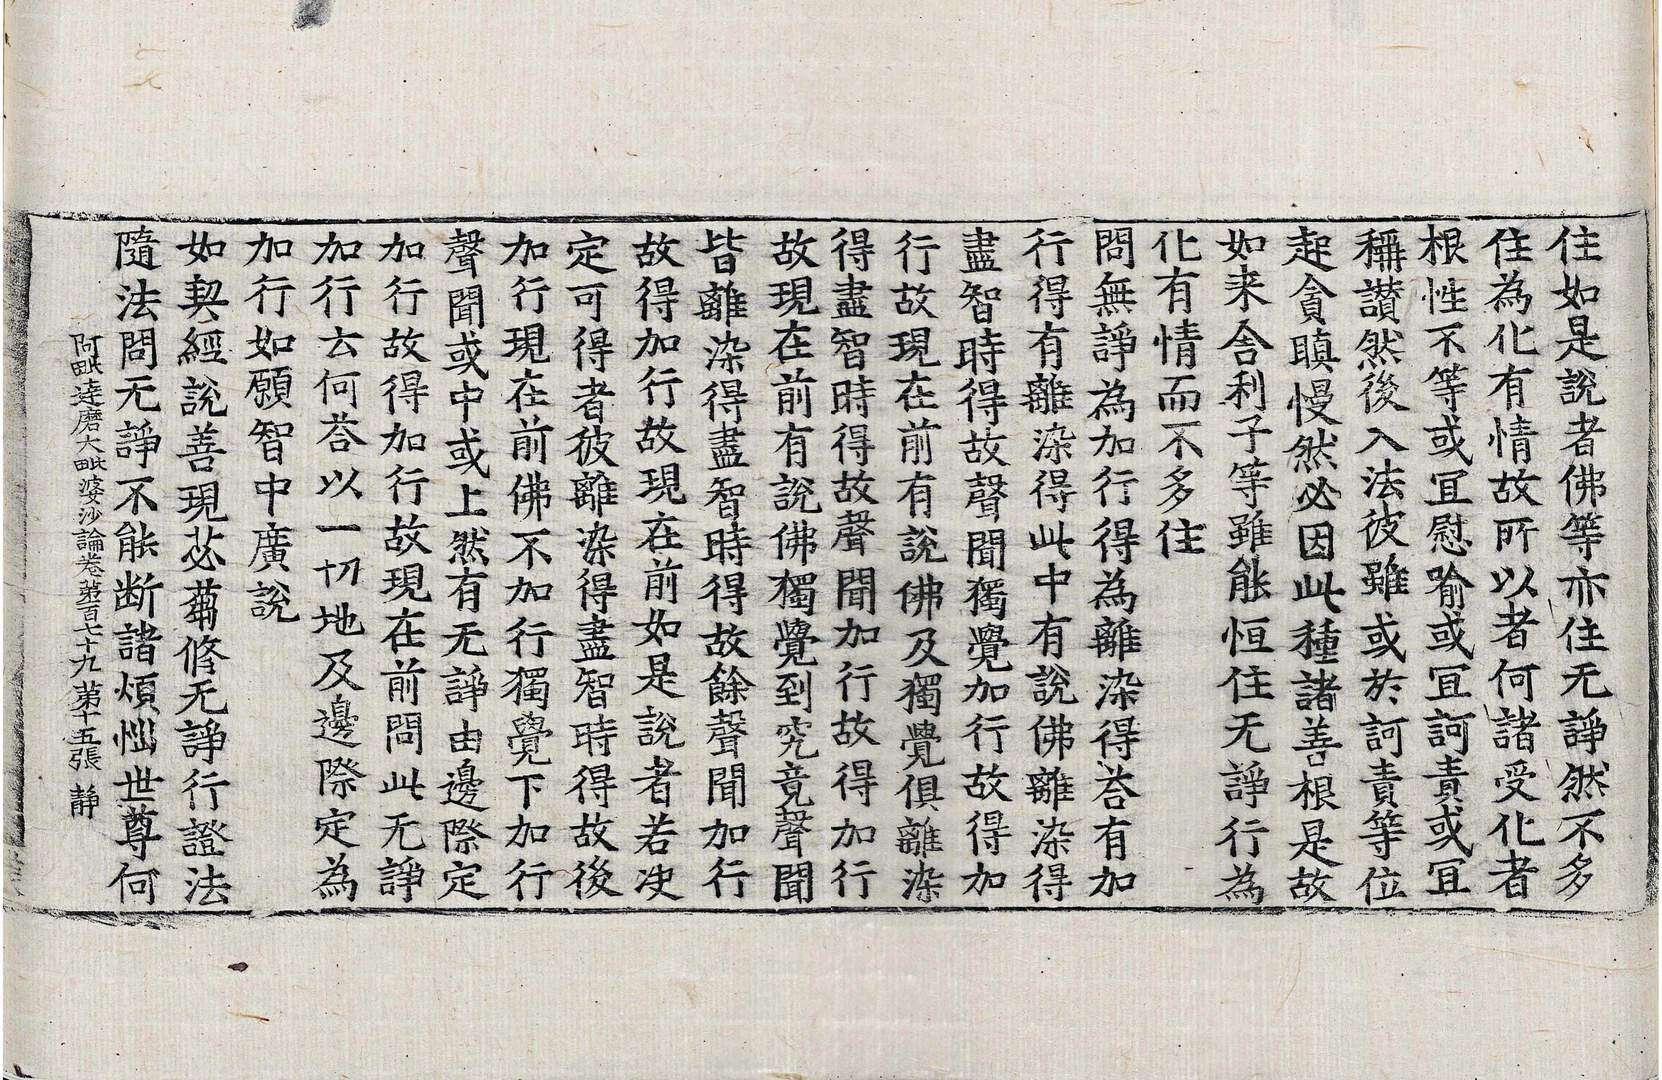 住如是說者佛等亦住无諍然不多
住為化有情故所以者何諸受化者
根性不等或冝慰喻或冝訶責或冝
稱讃然後入法彼雖或於訶責等位
起貪瞋慢然必因此種諸善根是故
如来舍利子等雖能恒住无諍行為
化有情而不多住
問無諍為加行得為離染得荅有加
行得有離染得此中有說佛離染得
盡智時得故聲聞獨覺加行故得加
行故現在前有說佛及獨覺俱離染
得盡智時得故聲聞加行故得加行
故現在前有說佛獨覺到究竟聲聞
皆離染得盡智時得故餘聲聞加行
故得加行故現在前如是說者若決
定可得者彼離染得盡智時得故後
加行現在前佛不加行獨覺下加行
聲聞或中或上然有无諍由邊際定
加行故得加行故現在前問此无諍
加行云何荅以一切地及邊際定為
加行如願智中廣說
如契經說善現苾蒭修无諍行證法
隨法問无諍不能断諸煩惱世尊何
阿毗達磨大毗婆沙論卷第百七十九 第十五張 静